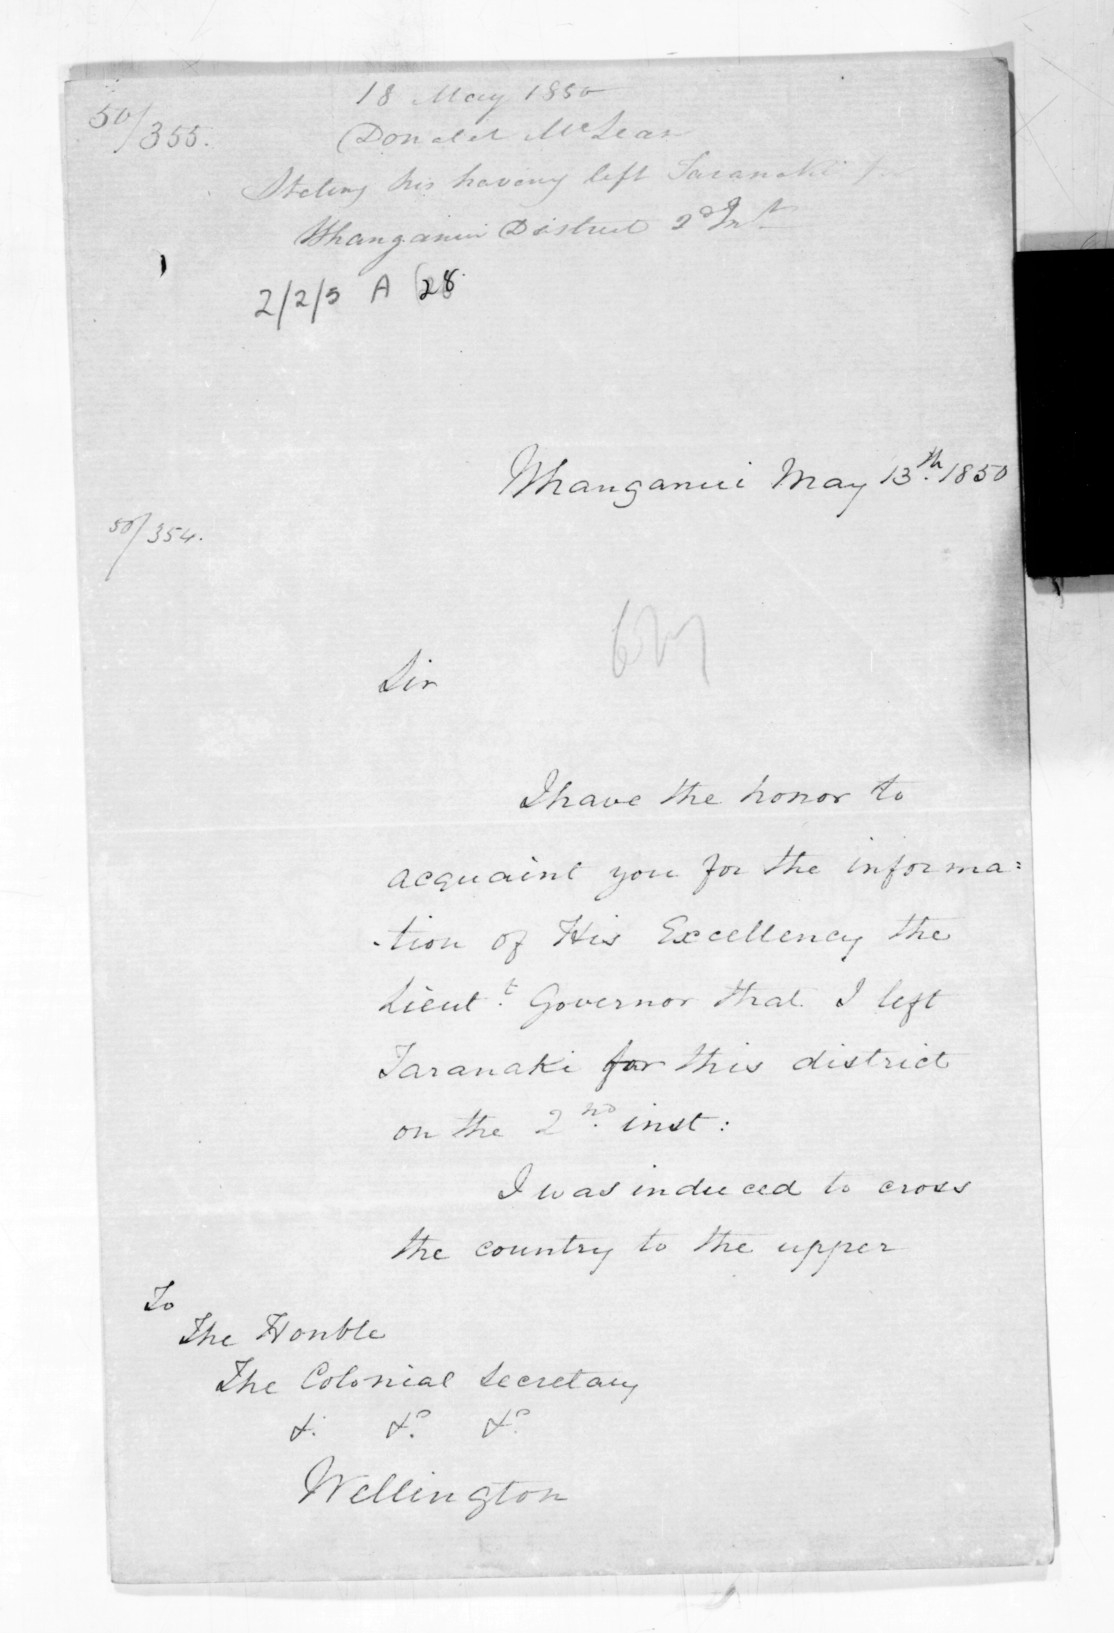 50/355.
18 May 1850
Donald McLean
Stating his having left Taranaki f
Whanganui District 2d Inst
2/2/5 A 28
Whanganui May 13th. 1850
50/354.
Sir
I have the honor to
acquaint you for the informa=
-tion of His Excellency the
Lieut.t Governor that I left
Taranaki for this district
on the 2nd. inst:
I was induced to cross
the country to the upper
To
The Honble
The Colonial Secretary
&. &c. &c.
Wellington